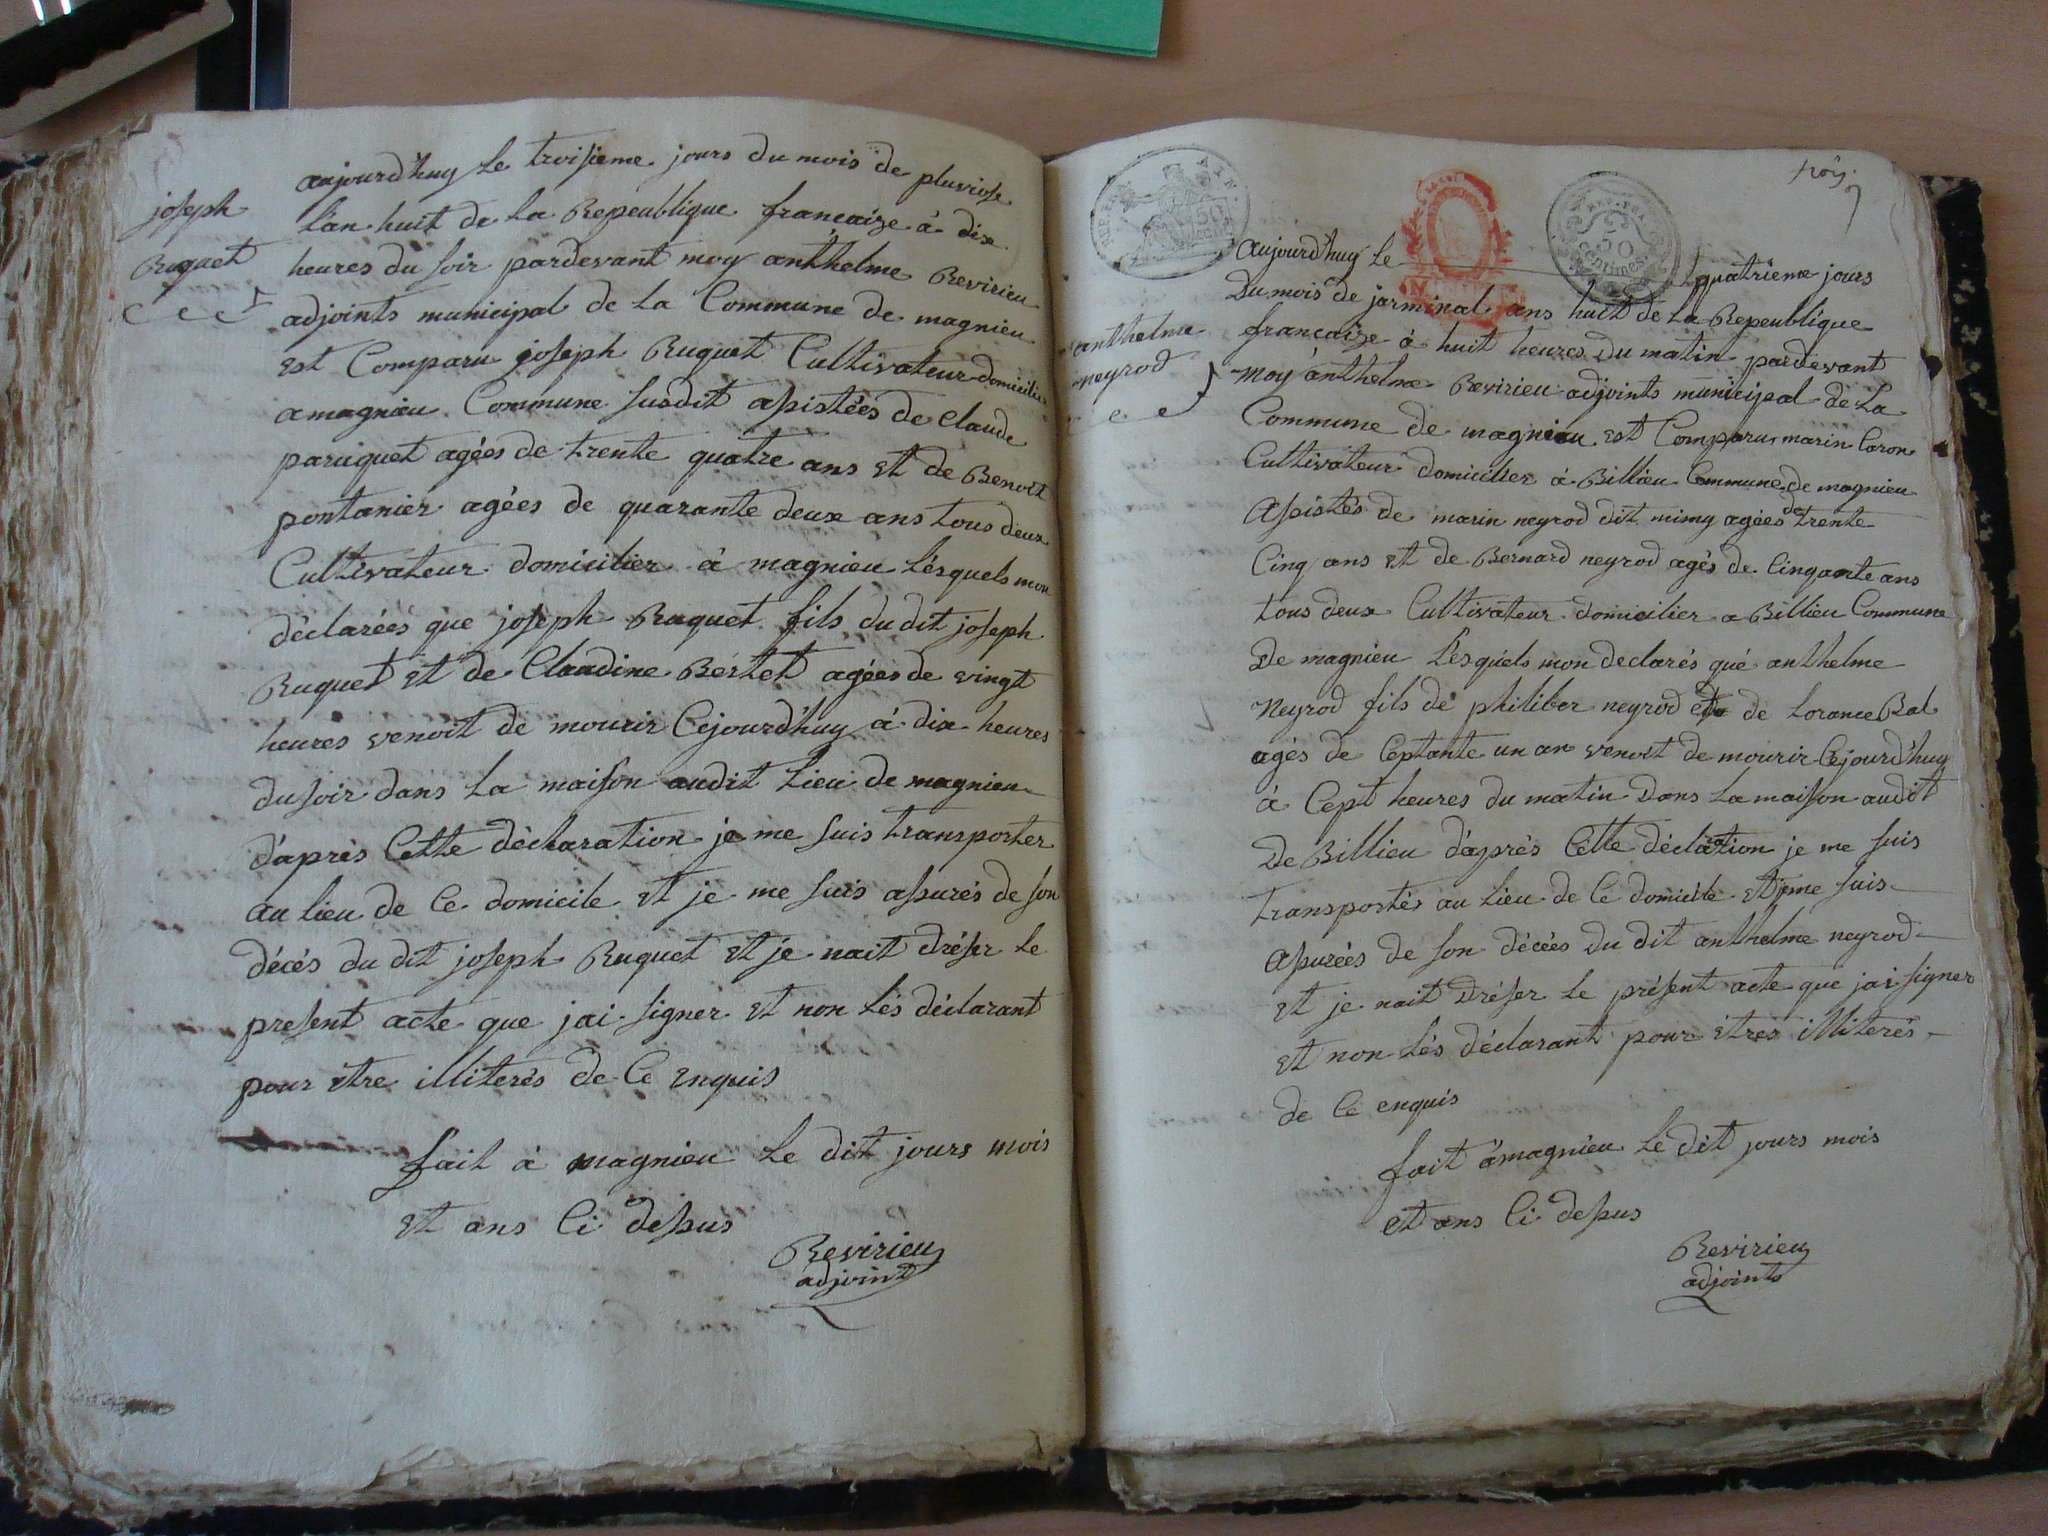 joseph
Buquet
aujourd'huy le troisieme jours du mois de pluviose
l'an huit de la Repeublique francaize à dix
heures du soir pardevant moy anthelme Revirieu
adjoints municipal de la Commune de magnieu
est Comparu joseph Buquet Cultivateur domicilier
a magnieu Commune susdit assistées de Claude
paruquet agées de trente quatre ans et de Benoit
pontanier agées de quarante deux ans tous deux
Cultivateur domicilier à magnieu lésquels mon
déclarées que joseph Buquet fils du dit joseph
Buquet et de Claudine Bertet agées de vingt
heures venoit de mourir Cejourd'huy à dix heures
du soir dans la maison audit lieu de magnieu
d'après Cette déclaration je me suis transporter
au lieu de Ce domicile et je me suis assurés de son
décés du dit joseph Buquet et je nait dréser le
present acte que jai signer et non lés déclarant
pour etre illiterés de Ce enquis
fait à magnieu le dit jours mois
et ans Ci dessus
Revirieu
adjoint
REP. FRA.
50
Centimes
anthelme
neyrod
aujourd'huy le quatrieme jours
Du mois de jarminal ans huit de la Repeublique
francaize à huit heures du matin pardevant
moy anthelme Revirieu adjoints municipal de la
Commune de magnieu est Comparu marin Caron
Cultivateur domicilier à Billieu Commune de magnieu
Assistés de marin neyrod dit mimy agées de trente
Cinq ans et de Bernard neyrod agés de Cinqante ans
tous deux Cultivateur domicilier a Billieu Commune
De magnieu Lésquéls mon declarés qué anthelme
Neyrod fils de philiber neyrod et de Lorance Bal
agés de Ceptante un an venoit de mourir Cejourd'huy
à Cept heures du matin Dans la maison audit
De Billieu d'après Cette déclaration je me suis
transportés au lieu de Ce domicile et je me suis
assurées de son décées Du dit anthelme neyrod
et je nait Dréser le présent acte que jai signer
et non lés déclarant pour étres illiterés
de Ce enquis
fait à magnieu le dit jours mois
et ans Ci dessus
Revirieu
adjoints